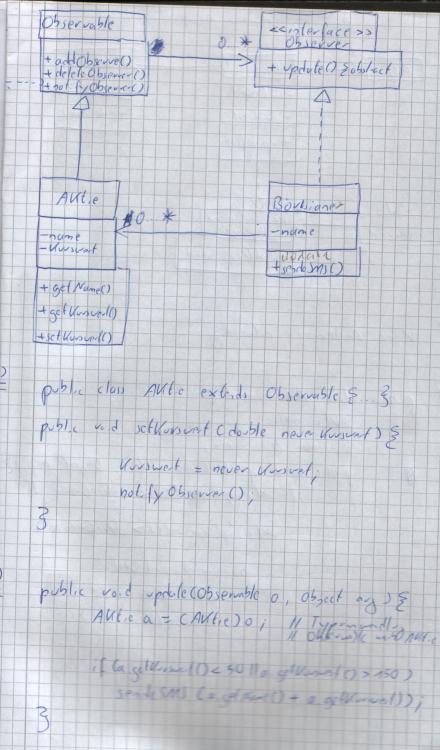 Observable
+ addObserve()
+ deleteObserver()
+ notifyObserver()
0 *
<<interface>>
Observer
+ update() {abstract
Aktie
- name
- Kurswert
+ getName()
+ getKurswert()
+ setKurswert()
0..*
Börsianer
- name
update
+ sendeSMS()
public class Aktie extends Observable {...}
public void setKurswert (double neuer Kurswert) {
Kurswert = neuer Kurswert;
notifyObserver();
}
public void update(Observable o, Object arg) {
Aktie a = (Aktie) o; //
// Observable Aktie
if (a.getKurswert() < 50 || a.getKurswert() > 150)
sendeSMS (a.getName() + a.getKurswert());
}